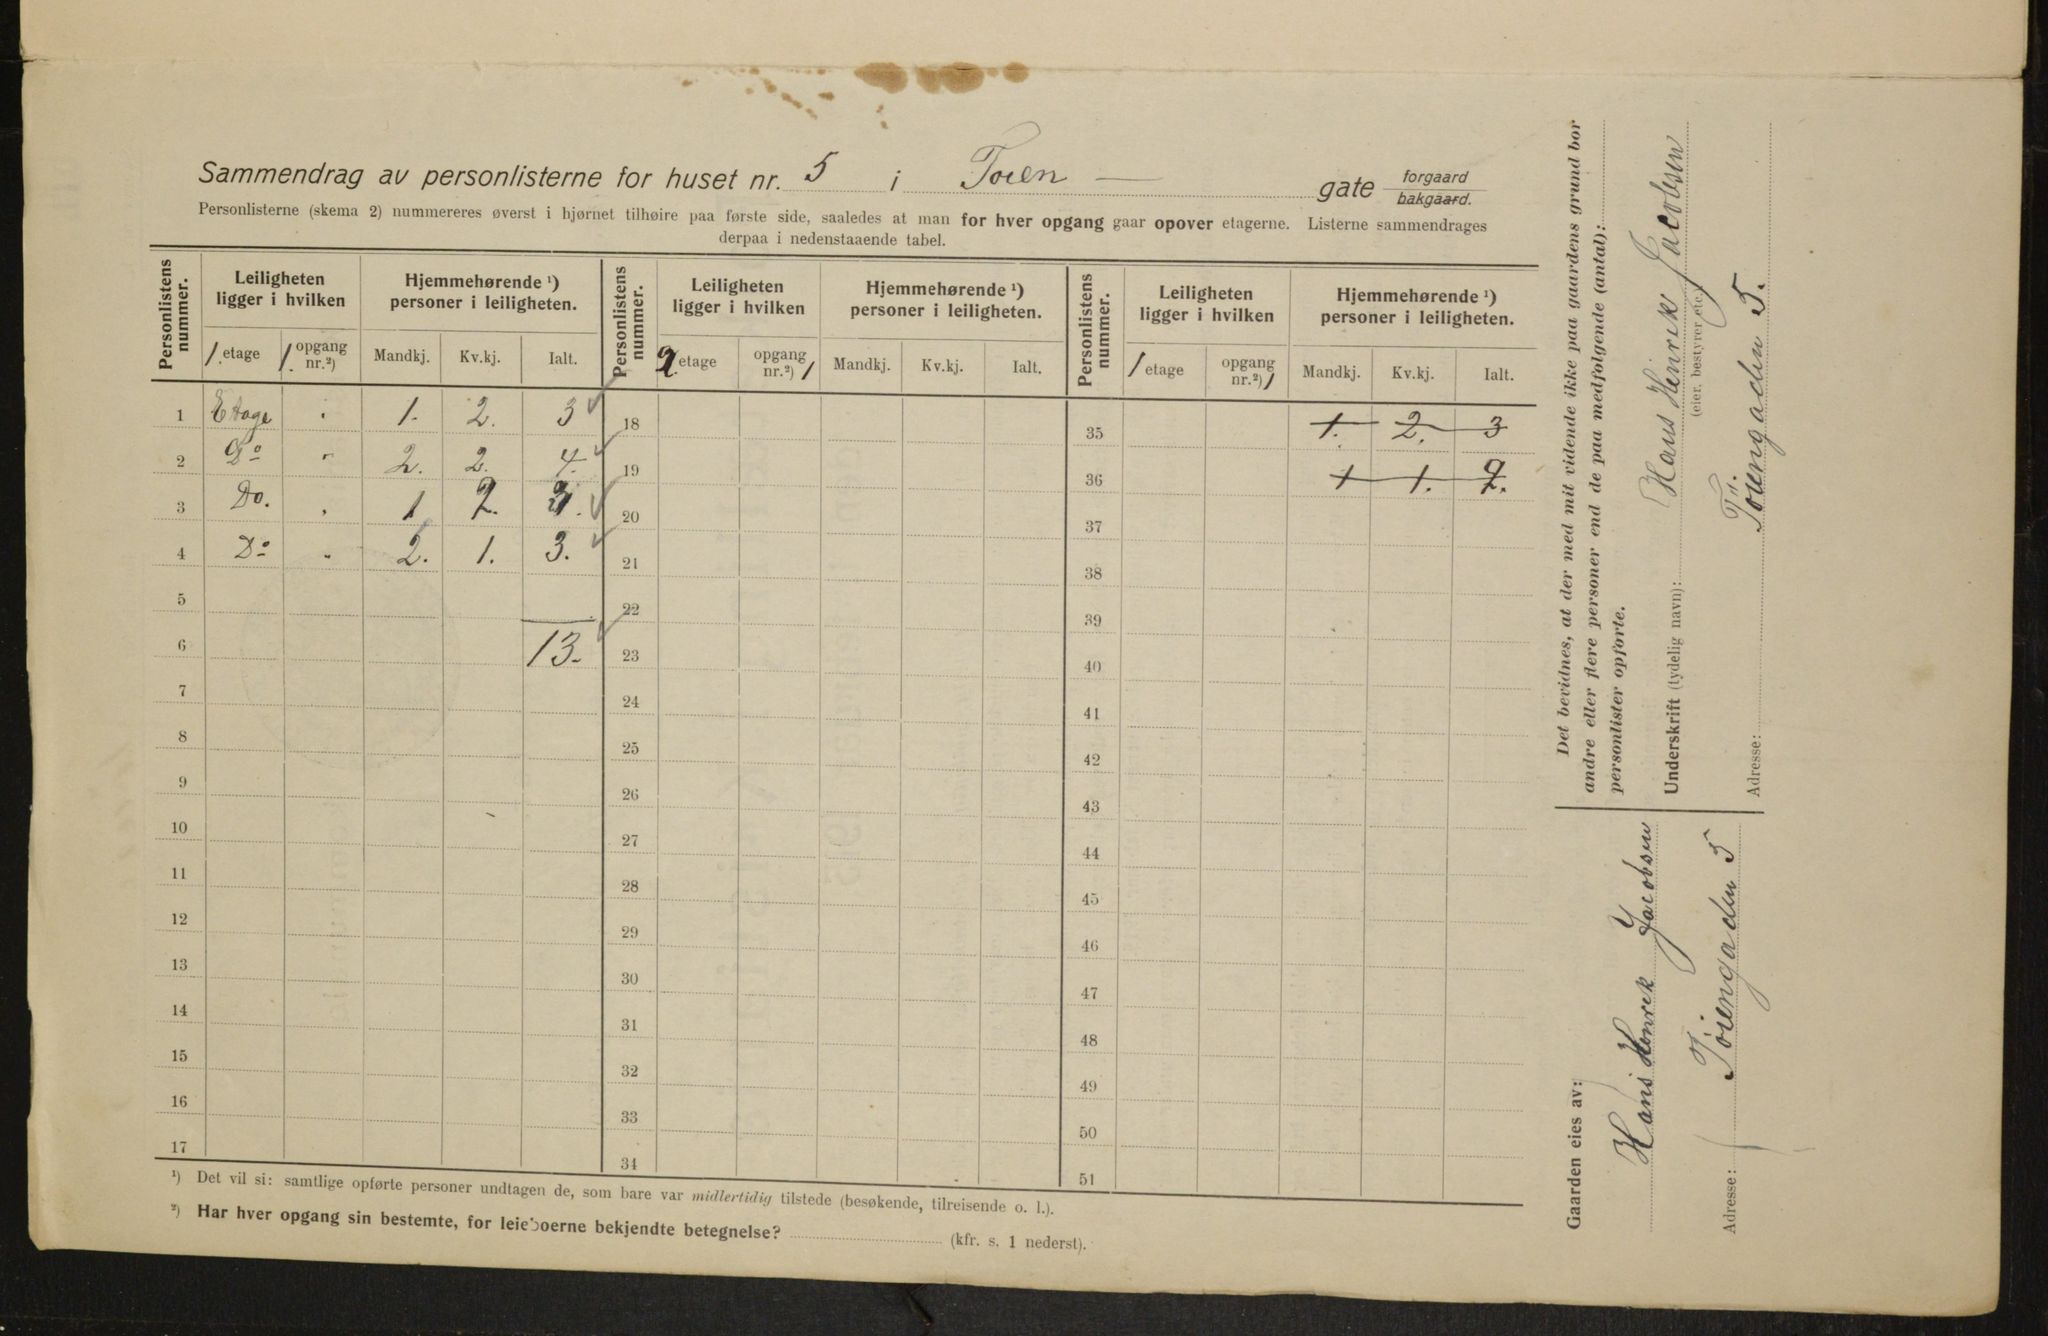 Sammendrag av personlisterne for huset nr. 5 i Toien — gate forgaard bakgaard.
Personlisterne (skema 2) nummereres øverst i hjørnet tilhøire paa første side, saaledes at man for hver opgang gaar opover etagerne. Listerne sammendrages
derpaa i nedenstaaende tabel.
Personlistens nummer. Leiligheten ligger i hvilken Hjemmehørende ¹) personer i leiligheten. Personlistens nummer. Leiligheten ligger i hvilken Hjemmehørende ¹) personer i leiligheten. Personlistens nummer. Leiligheten ligger i hvilken Hjemmehørende ¹) personer i leiligheten.
1. etage 1. opgang nr.²) Mandkj. Kv.kj. Ialt. 2 etage opgang nr.²) 1 Mandkj. Kv.kj. Ialt. 1 etage opgang nr.²) 1 Mandkj. Kv.kj. Ialt.
1 Etage " 1. 2. 3 18 35 1. 2. 3
2 Do " 2. 2. 4. 19 36 1 1. 2.
3 Do. " 1 2. 3. 20 37
4 Do " 2. 1. 3. 21 38
5 22 39
6 13. 23 40
7 24 41
8 25 42
9 26 43
10 27 44
11 28 45
12 29 46
13 30 47
14 31 48
15 32 49
16 33 50
17 34 51
¹) Det vil si: samtlige opførte personer undtagen de, som bare var midlertidig tilstede (besøkende, tilreisende o. l.).
²) Har hver opgang sin bestemte, for leieboerne bekjendte betegnelse? (kfr. s. 1 nederst).
Det bevidnes, at der med mit vidende ikke paa gaardens grund bor
andre eller flere personer end de paa medfølgende (antal):
personlister opførte.
Underskrift (tydelig navn): Hans Henrik Jacobsen
(eier, bestyrer etc.)
Adresse: Töiengaden 5.
Gaarden eies av:
Hans Henrik Jacobsen
Adresse: Töiengaden 5